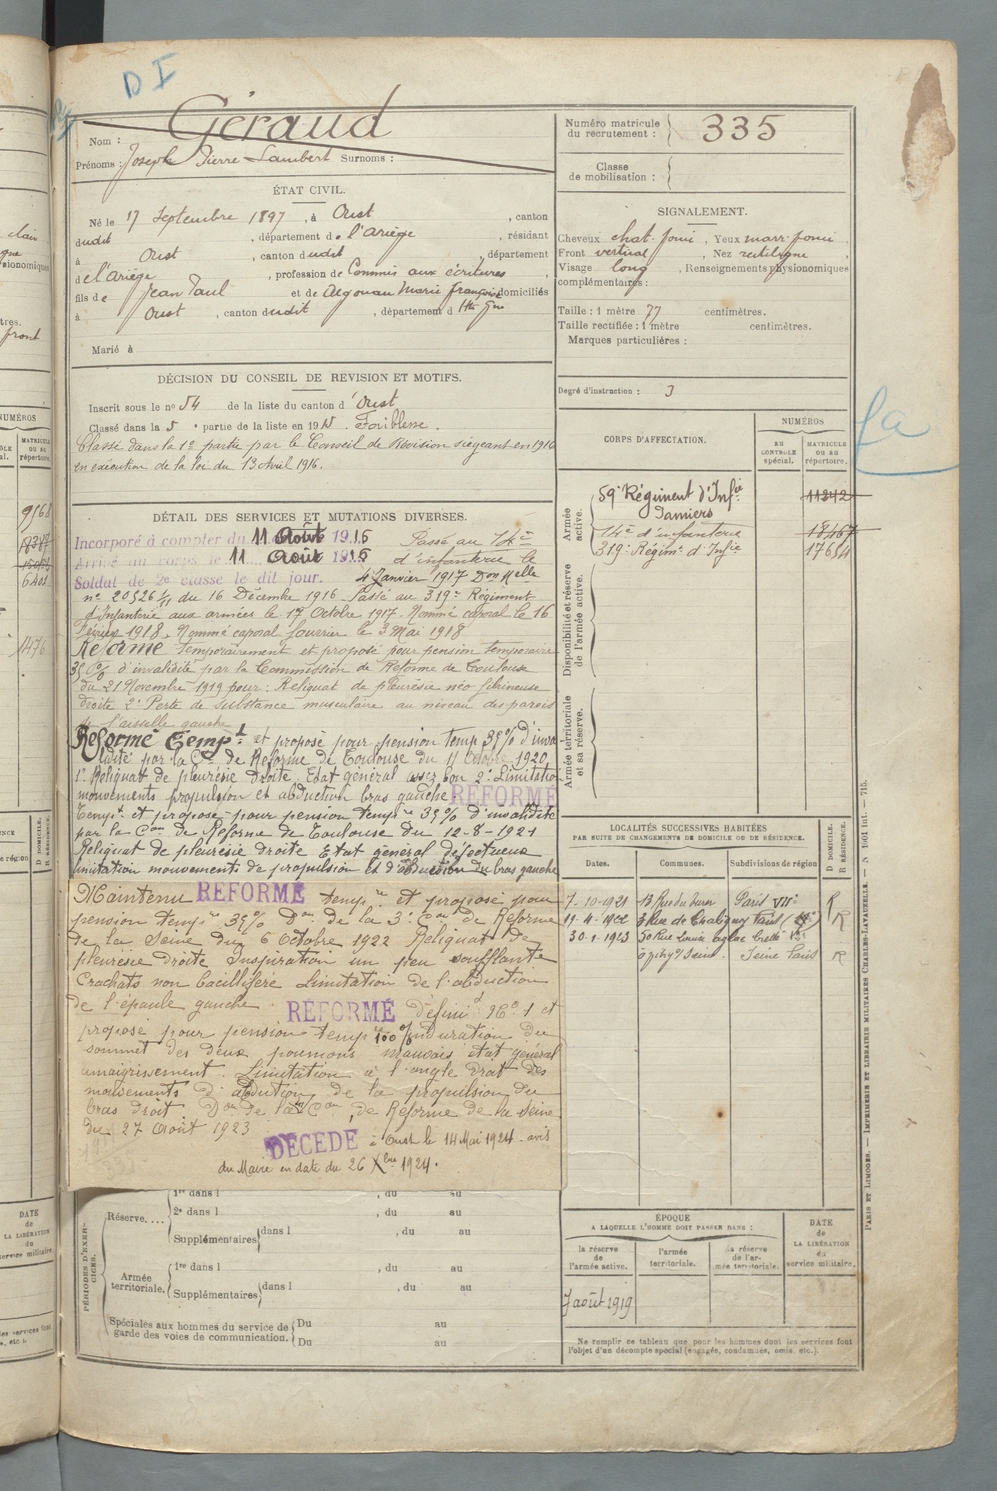 D I
Nom : Géraud
Prénoms : Joseph Pierre Lambert Surnoms :
Numéro matricule du recrutement : 335
Classe de mobilisation :
ÉTAT CIVIL.
Né le 17 Septembre 1897, à Oust, canton
dudit, département de l'Ariège, résidant
à Oust, canton dudit, département
de l'Ariège, profession de Commis aux écritures,
fils de Jean Paul et de Argouau Marie Françoise domiciliés
à Oust, canton dudit, département d Hte Gne
Marié à
SIGNALEMENT.
Cheveux chat. foncé, Yeux marr. foncé
Front vertical, Nez rectiligne,
Visage long, Renseignements physionomiques
complémentaires :
Taille : 1 mètre 77 centimètres.
Taille rectifiée : 1 mètre centimètres.
Marques particulières :
DÉCISION DU CONSEIL DE REVISION ET MOTIFS.
Inscrit sous le no 54 de la liste du canton d'Oust
Classé dans la 5e partie de la liste en 1915. Faiblesse.
Classé dans la 1e partie par le Conseil de Révision siégeant en 1916
en exécution de la loi du 13 Avril 1916.
Degré d'instruction : 3
CORPS D'AFFECTATION.
NUMÉROS
AU CONTRÔLE spécial.
MATRICULE OU AU répertoire.
Armée active.
59e Régiment d'Infie Pamiers 11242
14e d'infanterie 18467
319e Régimt d'Infie 17654
Disponibilité et réserve de l'armée active.
Armée territoriale et sa réserve.
DÉTAIL DES SERVICES ET MUTATIONS DIVERSES.
Incorporé à compter du 11 Août 1916 Passé au 14e
Arrivé au corps le 11 Août 1916 d'infanterie le
Soldat de 2e classe le dit jour. 4 Janvier 1917 Don Melle
no 20526 1/11 du 16 Décembre 1916 Passé au 319e Régiment
d'Infanterie aux armées le 17 Octobre 1917. Nommé caporal le 16
Février 1918. Nommé caporal fourrier le 3 Mai 1918
Réformé temporairement et proposé pour pension temporaire
35 % d'invalidité par la Commission de Réforme de Toulouse
du 21 Novembre 1919 pour : Reliquat de pleurésie néo fibrineuse
droite 2e Perte de substance musculaire au niveau des parois
de l'aisselle gauche
Réformé Tempt et proposé pour pension temp 35 % d'inva
lidité par la Con de Réforme de Toulouse du 11 Octobre 1920
1e Reliquat de pleurésie droite. Etat général assez bon 2e Limitation
mouvements propulsion et abduction bras gauche. REFORMÉ
Tempt et proposé pour pension tempre 35 % d'invalidité
par la Con de Réforme de Toulouse du 12-8-1921
Reliquat de pleurésie droite Etat général défectueux
limitation mouvements de propulsion et d'abduction du bras gauche
Maintenu REFORMÉ tempre et proposé pour
pension tempre 35 % Don de la 3e Con de Réforme
de la Seine du 6 Octobre 1922 Reliquat de
pleurésie droite Inspiration un peu soufflante
Crachats non bacillifère Limitation de l'abduction
de l'épaule gauche. RÉFORMÉ Définid No 1 et
proposé pour pension temp 100 % Induration du
sommet des deux poumons mauvais état général
amaigrissement. Limitation à l'angle droit des
mouvements d'abduction, de la propulsion du
bras droit. Don de la Con de Réforme de la Seine
du 27 Août 1923
DÉCÉDÉ à Oust le 14 Mai 1924. avis
du Maire en date du 26 Xbre 1924.
LOCALITÉS SUCCESSIVES HABITÉES
PAR SUITE DE CHANGEMENTS DE DOMICILE OU DE RÉSIDENCE.
Dates. Communes. Subdivisions de région D DOMICILE. R RÉSIDENCE.
7-10-1921 13 Rue du Paris VIIe R
11-4-1922 3 Rue de Chaligny Paris R
30-1-1923 50 Rue Louise
Seine Paris R
PÉRIODES D'EXERCICES.
Réserve....
1re dans l , du au
2e dans l , du au
Supplémentaires dans l , du au
Armée territoriale.
1re dans l , du au
Supplémentaires dans l , du au
Spéciales aux hommes du service de garde des voies de communication.
Du au
Du au
ÉPOQUE
A LAQUELLE L'HOMME DOIT PASSER DANS :
la réserve de l'armée active.
l'armée territoriale.
la réserve de l'armée territoriale.
DATE de LA LIBÉRATION du service militaire.
7 août 1919
Ne remplir ce tableau que pour les hommes dont les services font
l'objet d'un décompte spécial (engagés, condamnés, omis, etc.).
PARIS ET LIMOGES. — IMPRIMERIE ET LIBRAIRIE MILITAIRES CHARLES-LAVAUZELLE. — N 1001 Int. — 715.